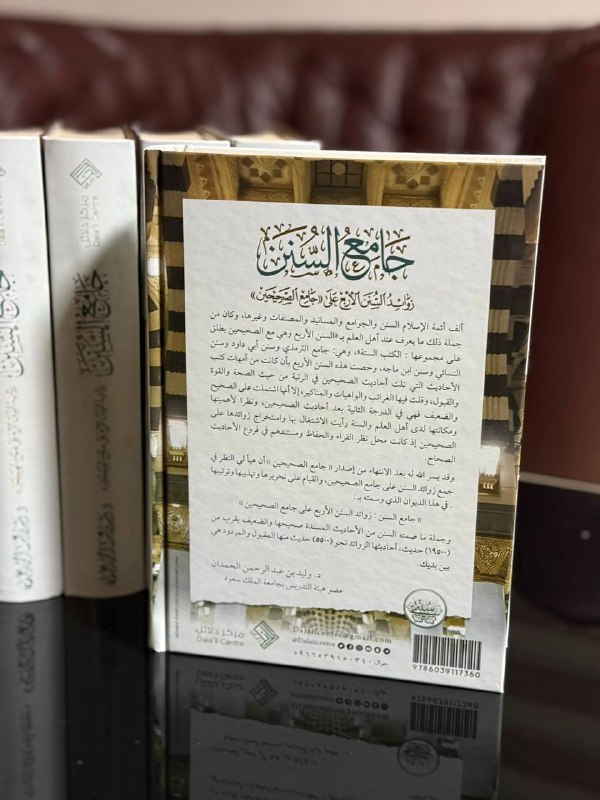 جَامِعُ السُّنَنِ
زَوَائِدُ السُّنَنِ الأَرْبَعِ عَلَى «جَامِعِ الصَّحِيحَيْنِ»
ألف أئمة الإسلام السنن والجوامع والمسانيد والمصنفات وغيرها، وكان من
جملة ذلك ما يعرف عند أهل العلم بـ «السنن الأربع وهي مع الصحيحين يطلق
على مجموعها : الكتب الستة»، وهي: جامع الترمذي وسنن أبي داود وسنن
النسائي وسنن ابن ماجه، وخصت هذه السنن الأربع بأن كانت من أمهات كتب
الأحاديث التي تلت أحاديث الصحيحين في الرتبة من حيث الصحة والقوة
والقبول، وقلت فيها الغرائب والواهيات والمناكير، إلا أنها اشتملت على الصحيح
والضعيف فهي في الدرجة الثانية بعد أحاديث الصحيحين، ونظرا لأهميتها
ومكانتها لدى أهل العلم والسنة رأيت الاشتغال بها واستخراج زوائدها على
الصحيحين إذ كانت محل نظر القراء والحفاظ ومستندهم في فروع الأحاديث
الصحاح.
وقد يسر الله له بعد الانتهاء من إصدار « جامع الصحيحين » أن هيأ لي النظر في
جمع زوائد السنن على جامع الصحيحين، والقيام على تحريرها وتهذيبها وترتيبها
في هذا الديوان الذي وسمته بـ :
«جامع السنن : زوائد السنن الأربع على جامع الصحيحين »
وجملة ما ضمته السنن من الأحاديث المسندة صحيحها والضعيف يقرب من
(١٩٥٠٠) حديث، أحاديثها الزوائد نحو (٥٥٠٠) حديث منها المقبول والمردود هي
بين يديك.
د. وليد بن عبد الرحمن الحمدان
عضو هيئة التدريس بجامعة الملك سعود
مركز دلائل
Dala'il Centre
Dalailcentre@gmail.com
@Dalailcentre
جوال: ٩٦٦٥٣٩١٥٠٣٤٠+
9786039117360
مركز دلائل
Dala'il Centre
جامع السنن